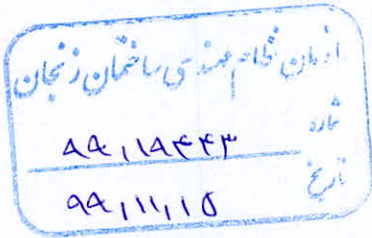 سازمان نظام مهندسی ساختمان زنجان
شماره ۹۹,۱۹۴۴۳
تاریخ ۹۹,۱۱,۱۵